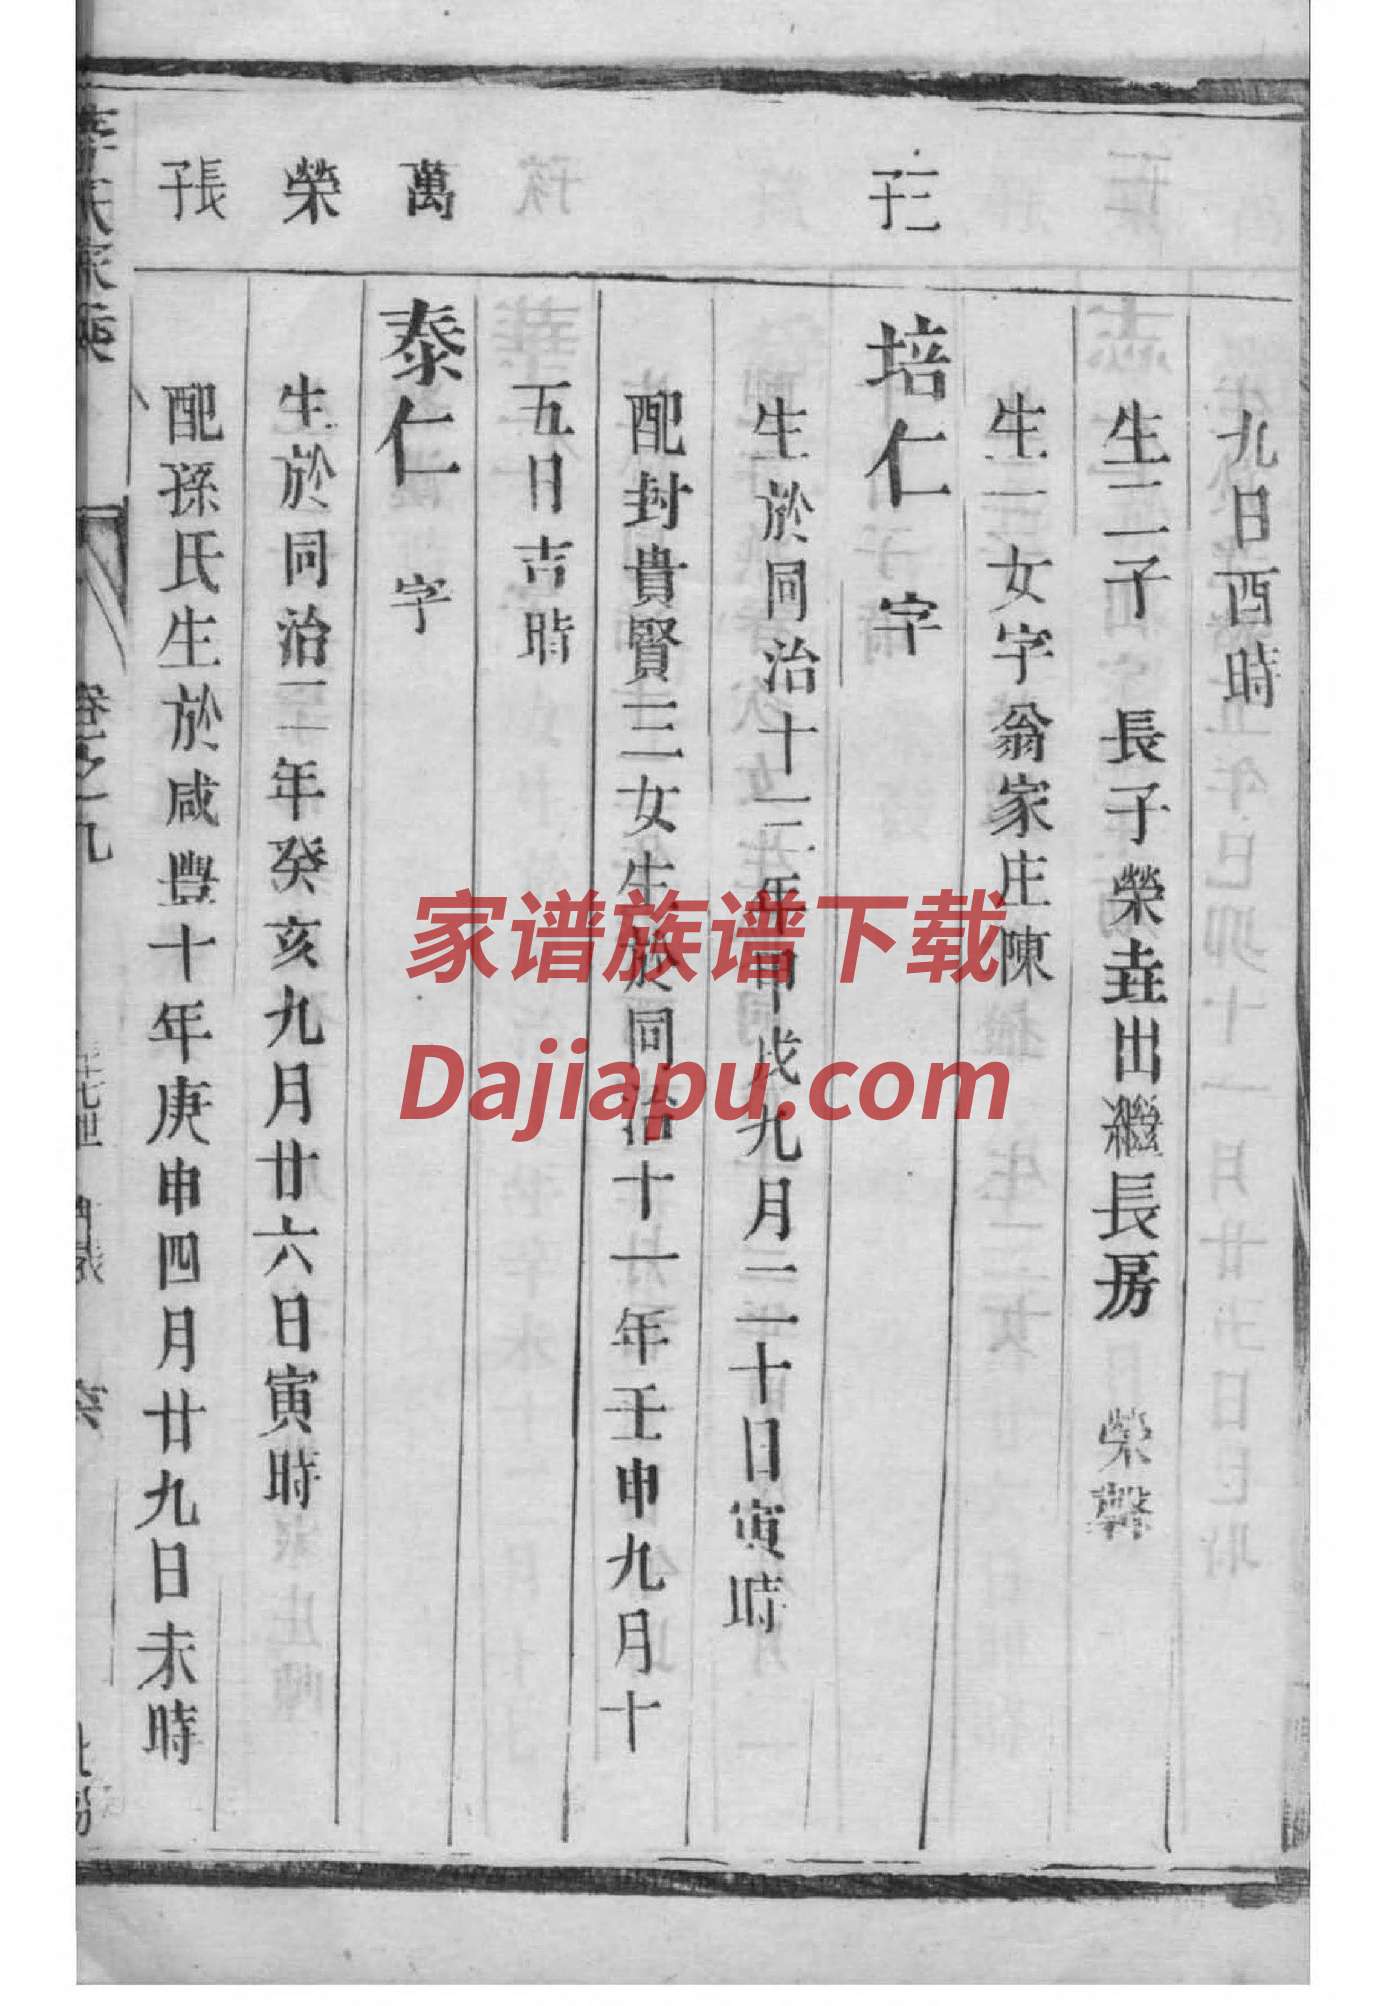 九日酉時
生二子 長子榮垚出繼長房 榮馨
生一女字翁家庄陳
三子
培仁 字
生於同治十三年甲戌九月二十日寅時
配封貴賢三女生於同治十一年壬申九月十
五日吉時
萬
泰仁 字
榮
生於同治二年癸亥九月廿六日寅時
張子
配孫氏生於咸豐十年庚申四月廿九日未時
李氏家乘 卷之九
家谱族谱下载
Dajiapu.com